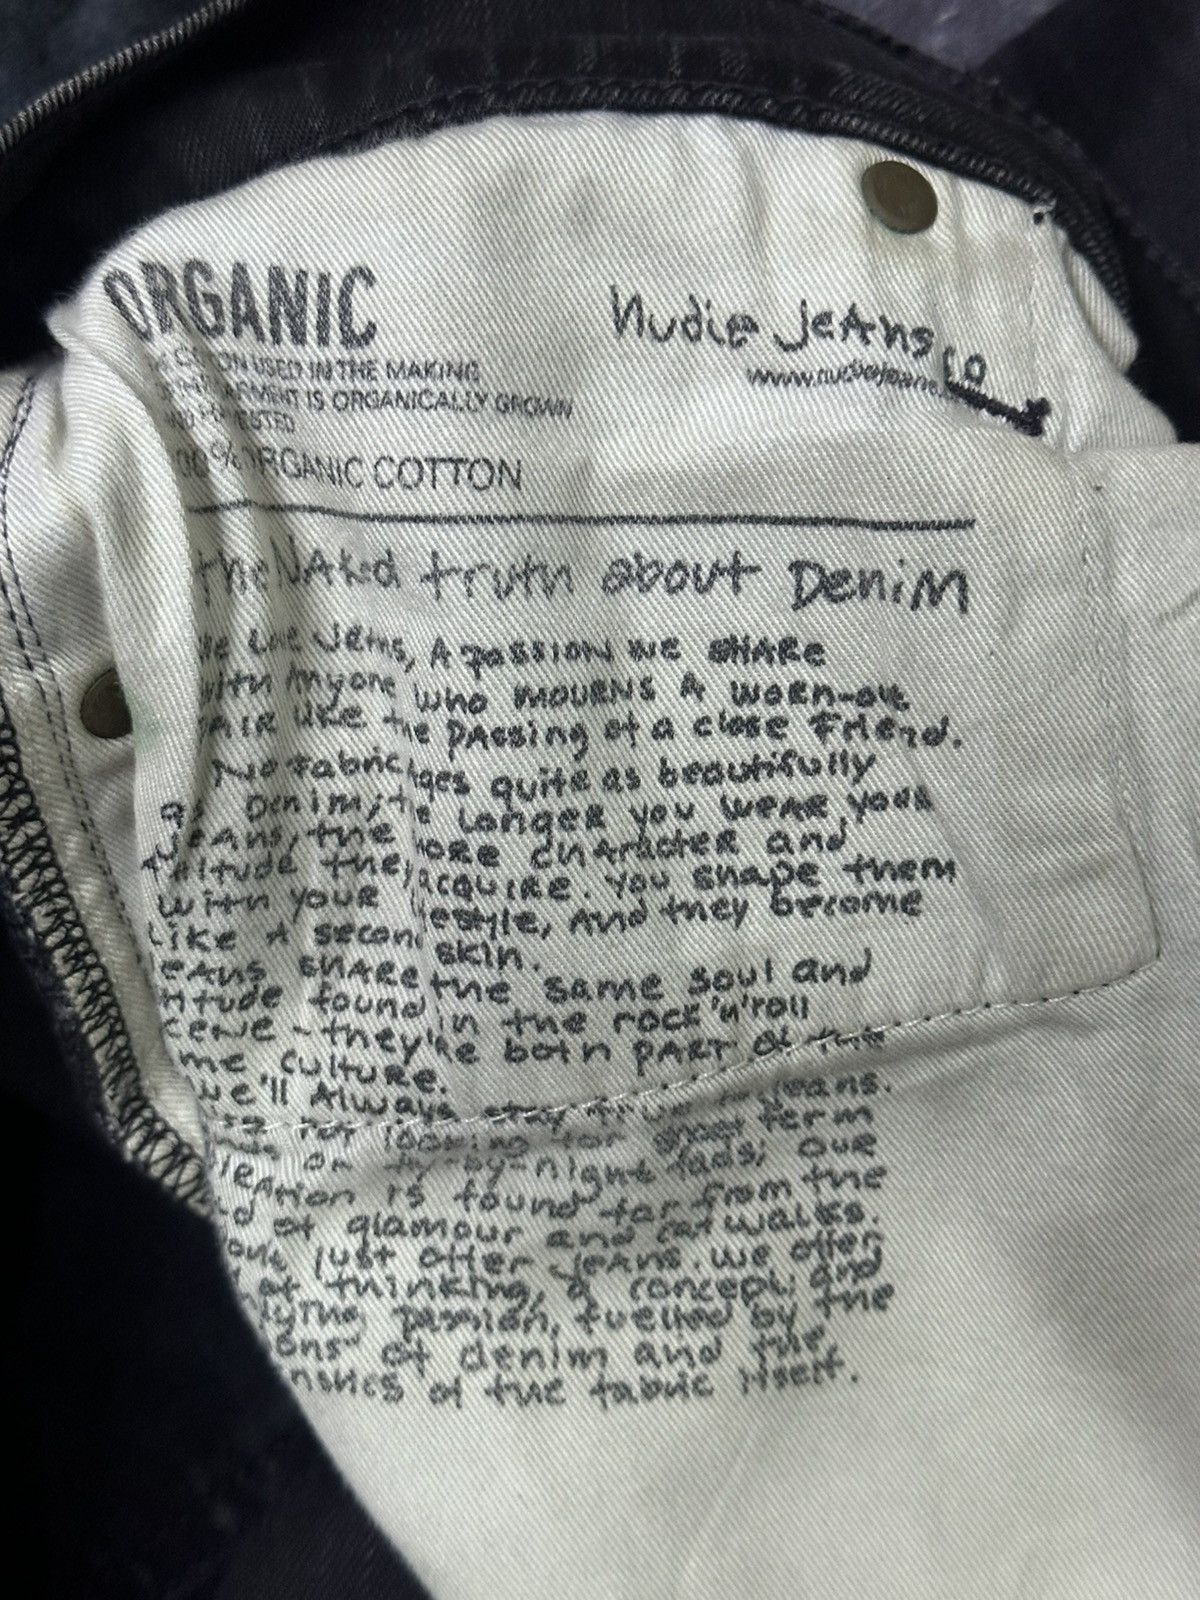 ORGANIC
USED IN THE MAKING
IS ORGANICALLY GROWN
ORGANIC COTTON
nudie jeans co
www.nudiejeans.
the Naked truth about Denim
We Love Jeans, A passion we share
with Anyone who mourns A worn-out
pair like the passing of a close friend.
No fabric ages quite as beautifully
as Denim; the longer you wear your
jeans, the more character and
attitude they acquire. You shape them
with your lifestyle, And they become
Like A second skin.
jeans share the same soul and
attitude found in the rock'n'roll
scene - they're both part of the
same culture.
we'll Always stay true to jeans.
not looking for short term
or fly-by-night fads; our
is found far from the
of glamour and catwalks.
just offer jeans. We offer
of thinking, a concept and
passion, fuelled by the
of denim and the
of the fabric itself.